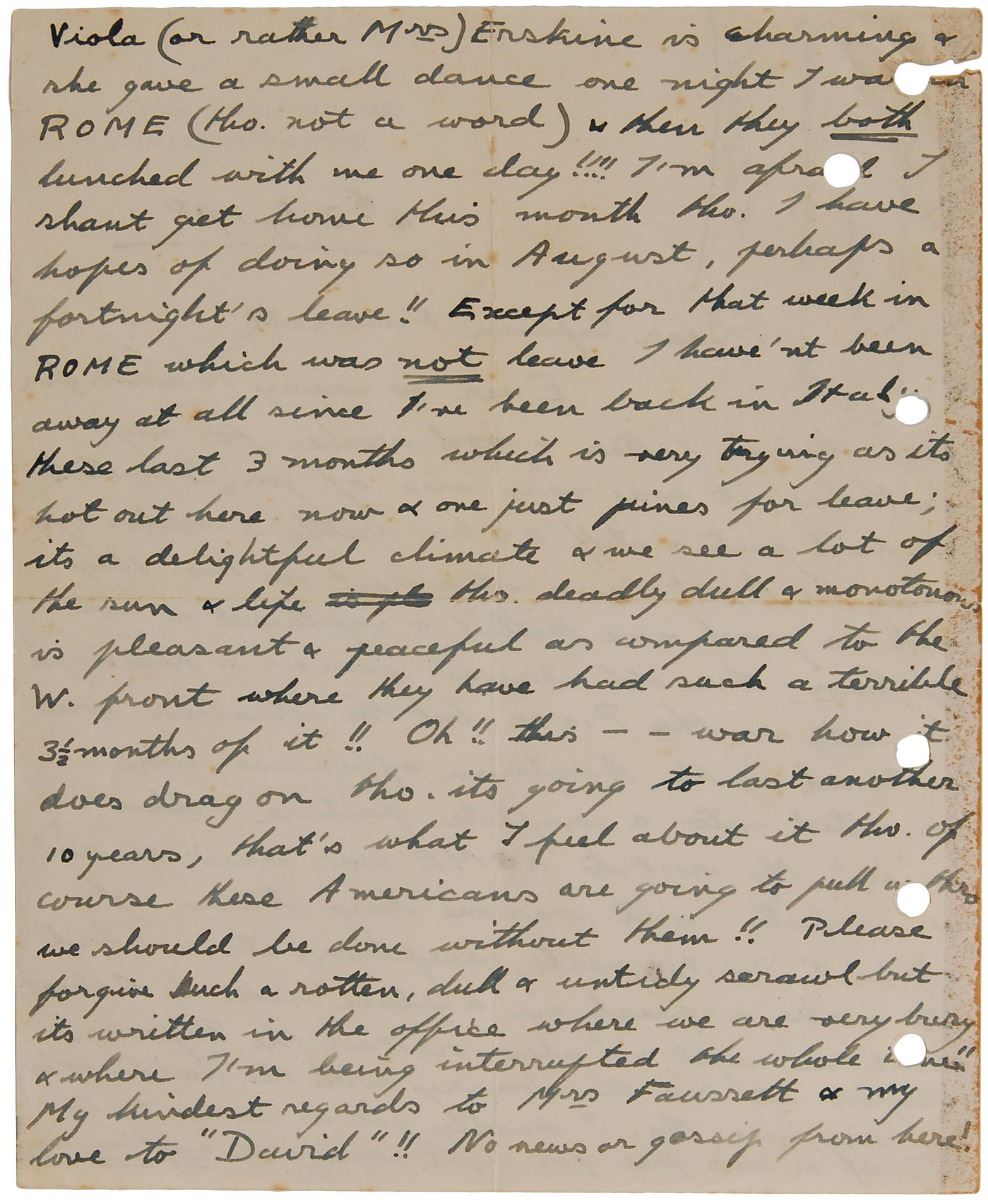 Viola (or rather Mrs) Erskine is charming &
she gave a small dance one night I was in
ROME (tho. not a word) & then they both
lunched with me one day!!!! I'm afraid I
shant get home this month tho. I have
hopes of doing so in August, perhaps a
fortnight's leave!! Except for that week in
ROME which was not leave I have'nt been
away at all since I've been back in Italy
these last 3 months which is very trying as its
hot out here now & one just pines for leave;
its a delightful climate & we see a lot of
the sun & life tho. deadly dull & monotonous
is pleasant & peaceful as compared to the
W. front where they have had such a terrible
3½ months of it!! Oh!! this — — war how it
does drag on tho. its going to last another
10 years, that's what I feel about it tho. of
course these Americans are going to pull us thro
we should be done without them!! Please
forgive such a rotten, dull & untidy scrawl but
its written in the office where we are very busy
& where I'm being interrupted the whole time!!
My kindest regards to Mrs Faussett & my
love to "David"!! No news or gossip from here!